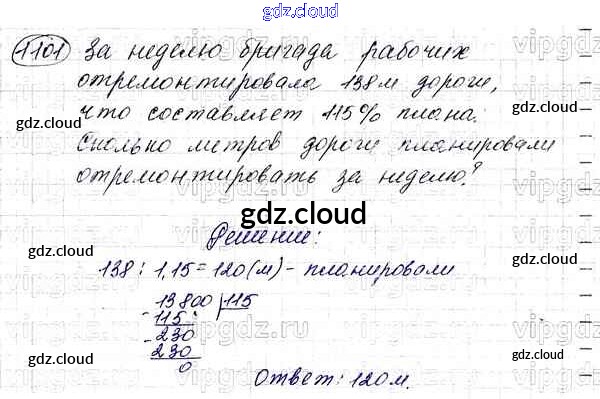 gdz.cloud
1101 За неделю бригада рабочих
отремонтировала 138 м дороги,
что составляет 115% плана.
gdz.cloud
gdz.cloud
Сколько метров дороги планировали
отремонтировать за неделю?
gdz.cloud
Решение:
gdz.cloud
gdz.cloud
138 : 1,15 = 120 (м) - планировали
13800 | 115
- 115
- 230
230
0
gdz.cloud
gdz.cloud
Ответ: 120 м.